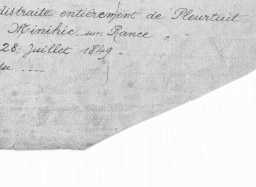 distraite entièrement de Pleurtuit
Minihic sur Rance „ „
28 juillet 1849 -